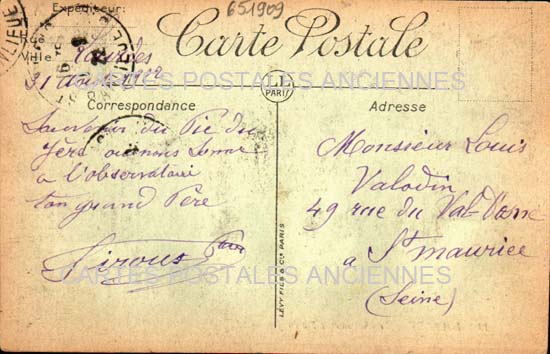 651909
Expéditeur:
Carte Postale
Rue
Ville Lourdes
31 1922
CARTES POSTALES ANCIENNES
LL
PARIS
Correspondance
Adresse
Souvenir du Pic du
Gers
a l'observatoire
ton grand Père
Monsieur Louis
Valodin
49 rue du Val d'Osne
a St maurice
(Seine)
CARTES POSTALES ANCIENNES
LÉVY FILS & Cie PARIS